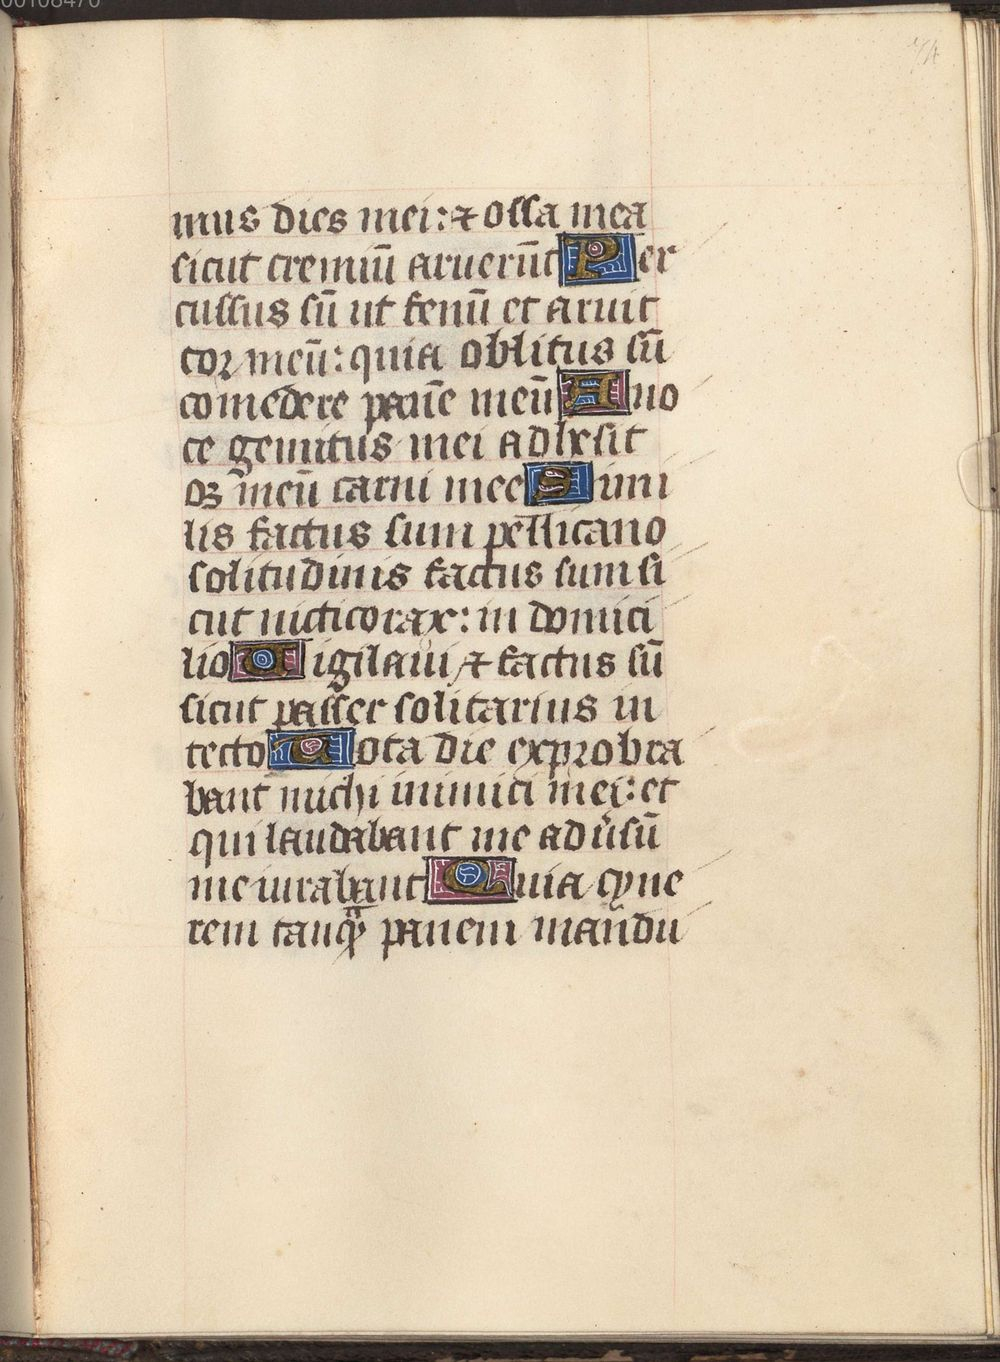 00108470
74
mus dies mei: & ossa mea
sicut cremiū aruerūt Per
cussus sū ut fenū et aruit
cor meū: quia oblitus sū
comedere panē meū A uo
ce gemitus mei adhesit
os meū carni mee Simi
lis factus sum pellicano
solitudinis factus sum si
cut nicticorax: in domici
lio Vigilaui & factus sū
sicut passer solitarius in
tecto Tota die exprobra
bant michi inimici mei: et
qui laudabant me adu̓sū
me iurabant Quia cyne
rem tanꝗ̄ panem mandu